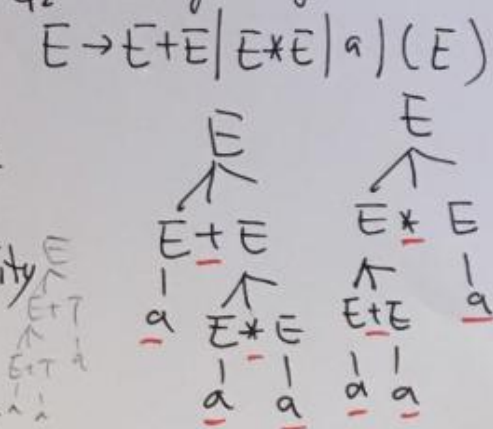 E → E+E | E*E | a | (E)
E E
E + E E * E
a E * E E+E a
a a a a
ity
E
E+T
E+T a
a a